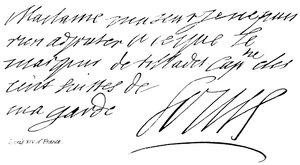 Madame ma seur je ne puis
rien adjouter a ce que le
marquis de        Cap.ne des
cent suisses de
ma garde
Louis
Louis XIV of France